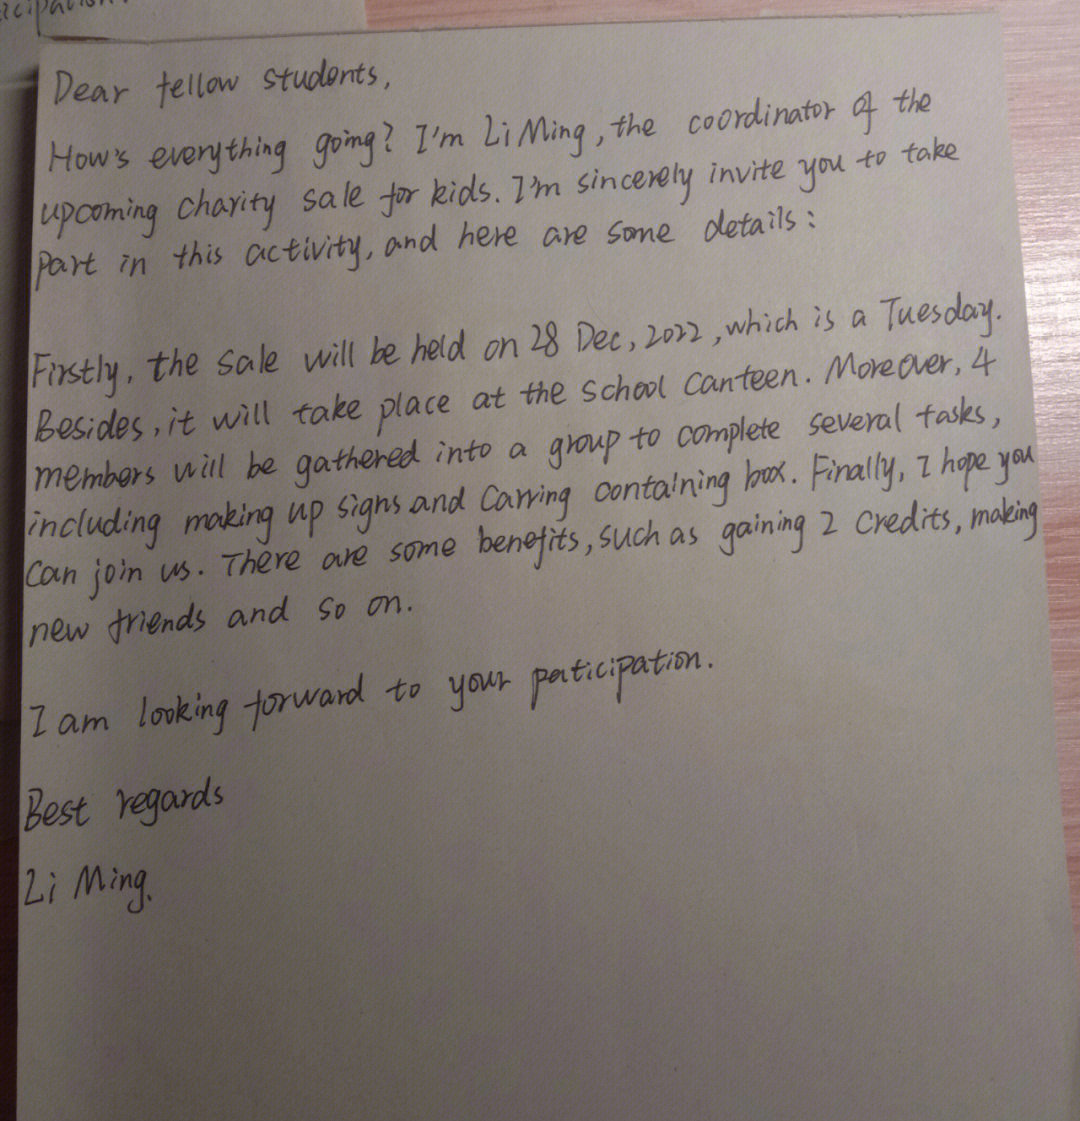 Dear fellow students,
How's everything going? I'm Li Ming, the coordinator of the
upcoming charity sale for kids. I'm sincerely invite you to take
part in this activity, and here are some details:
Firstly, the sale will be held on 28 Dec, 2022, which is a Tuesday.
Besides, it will take place at the school canteen. Moreover, 4
members will be gathered into a group to complete several tasks,
including making up signs and Carring containing box. Finally, I hope you
can join us. There are some benefits, such as gaining 2 credits, making
new friends and so on.
I am looking forward to your paticipation.
Best regards
Li Ming.